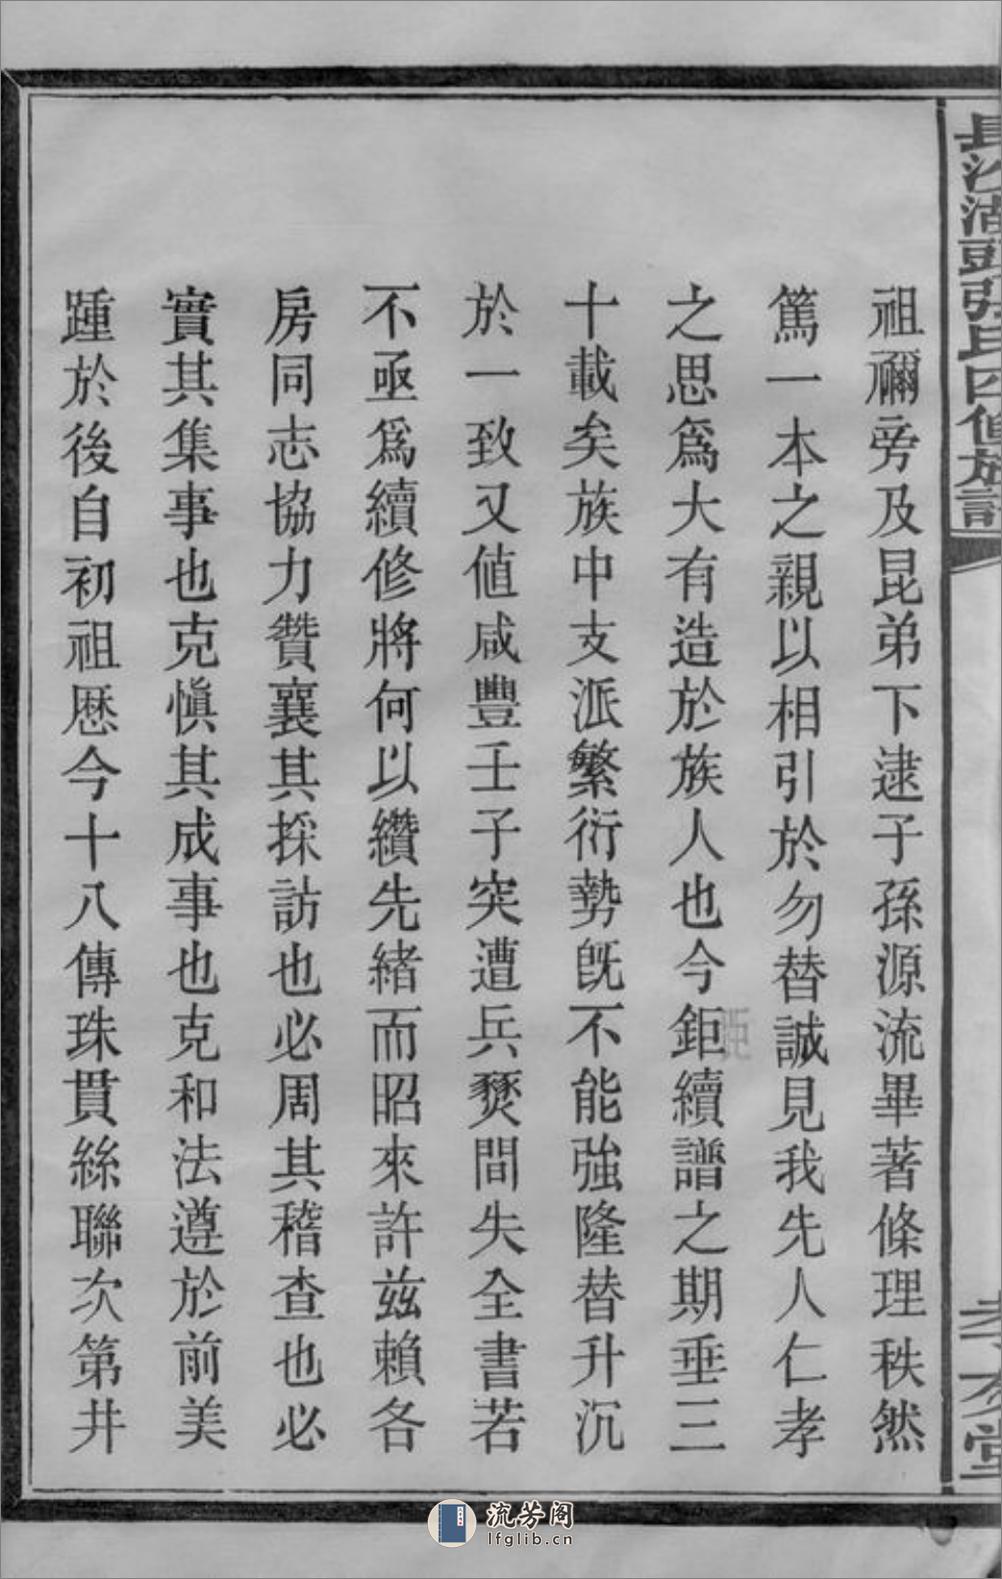 長沙湳頭張氏四修族譜
孝友堂
祖禰旁及昆弟下逮子孫源流畢著條理秩然
篤一本之親以相引於勿替誠見我先人仁孝
之思爲大有造於族人也今鉅續譜之期垂三
十載矣族中支派繁衍勢旣不能強隆替升沉
於一致又值咸豐壬子突遭兵燹間失全書若
不亟爲續修將何以纘先緒而昭來許茲賴各
房同志協力贊襄其採訪也必周其稽查也必
實其集事也克愼其成事也克和法遵於前美
踵於後自初祖歷今十八傳珠貫絲聯次第井
流芳阁
lfglib.cn